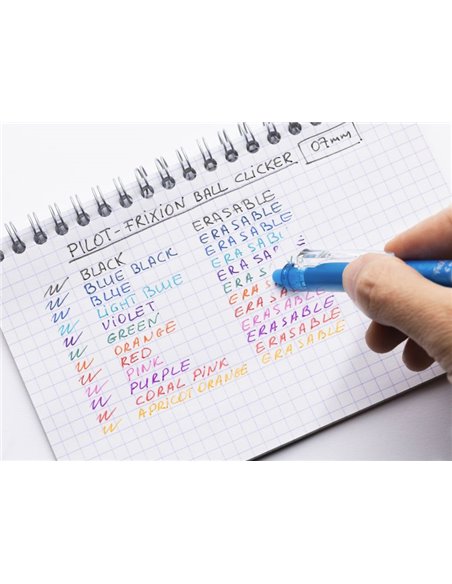 PILOT-FRIXION BALL CLICKER 07mm
BLACK ERASABLE
BLUE BLACK ERASABLE
BLUE ERASABLE
LIGHT BLUE ERASABL
VIOLET ERASABLE
GREEN ERAS
ORANGE ERAS
RED ERASA
PINK ERASABLE
PURPLE ERASABLE
CORAL PINK ERASABLE
APRICOT ORANGE ERASABLE